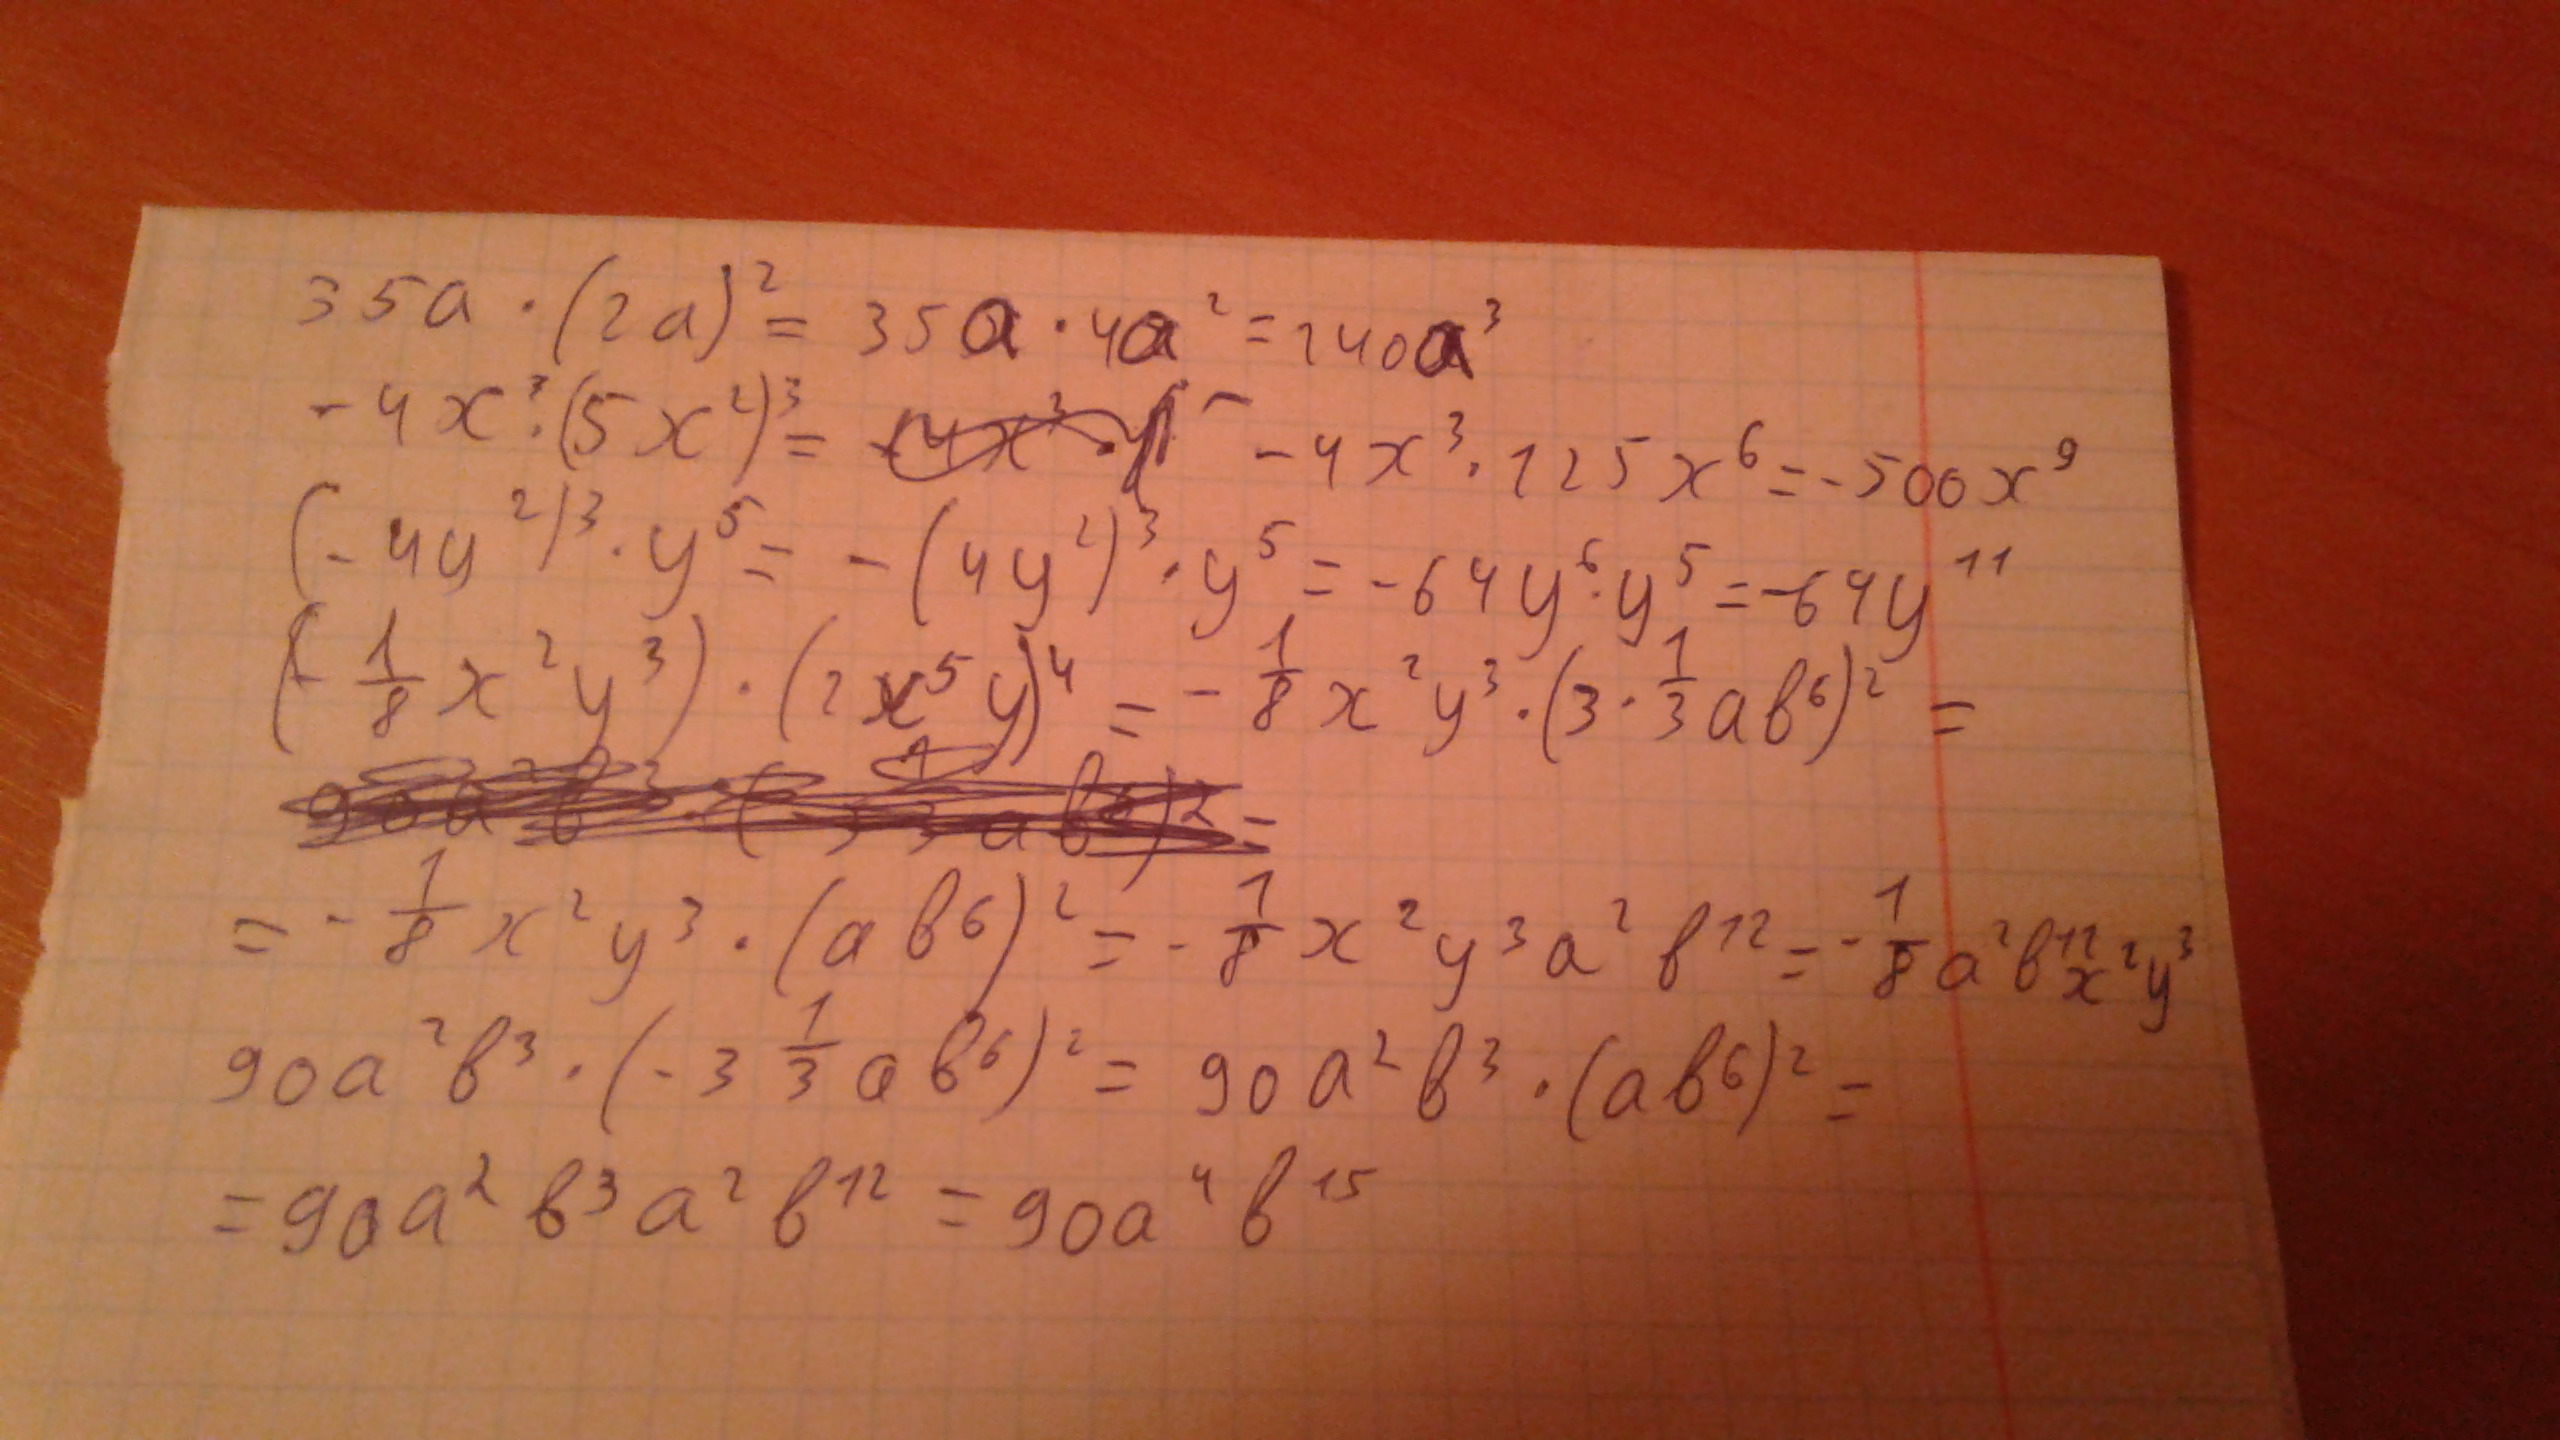 35a · (2a)² = 35a · 4a² = 140a³
-4x³ · (5x²)³ = -4x³ · 125x⁶ = -500x⁹
(-4y²)³ · y⁵ = -(4y²)³ · y⁵ = -64y⁶ · y⁵ = -64y¹¹
(-1/8 x²y³) · (2x⁵y)⁴ = -1/8 x²y³ · (3 · 1/3 ab⁶)² =
= -1/8 x²y³ · (ab⁶)² = -1/8 x²y³a²b¹² = -1/8 a²b¹²x²y³
90a²b³ · (-3 1/3 ab⁶)² = 90a²b³ · (ab⁶)² =
= 90a²b³a²b¹² = 90a⁴b¹⁵